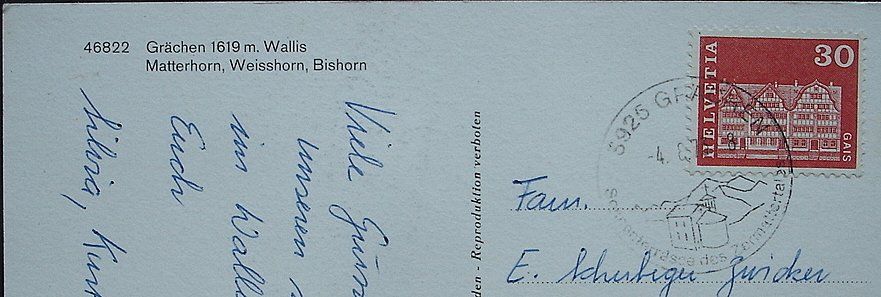 46822 Grächen 1619 m. Wallis
Matterhorn, Weisshorn, Bishorn
Viele
unseren
im
Euch
Silvia, Kurt
den - Reproduktion verboten
HELVETIA
30
GAIS
3925 GRÄCHEN
-4. 8
Sonnenterrasse des Zermattertales
Fam.
E. Scherbiger-Zwicker